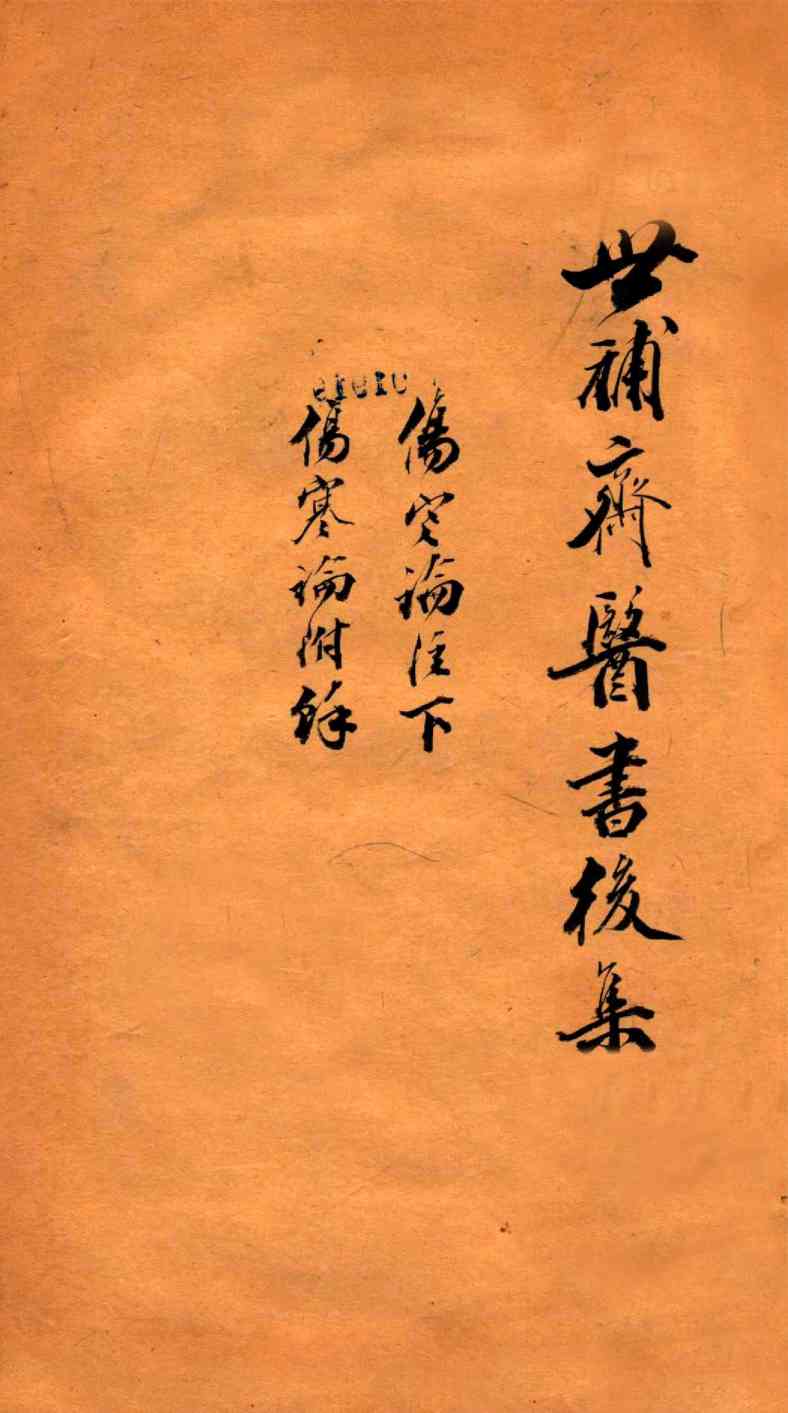 世補齋醫書後集
傷寒論注下
傷寒論附餘